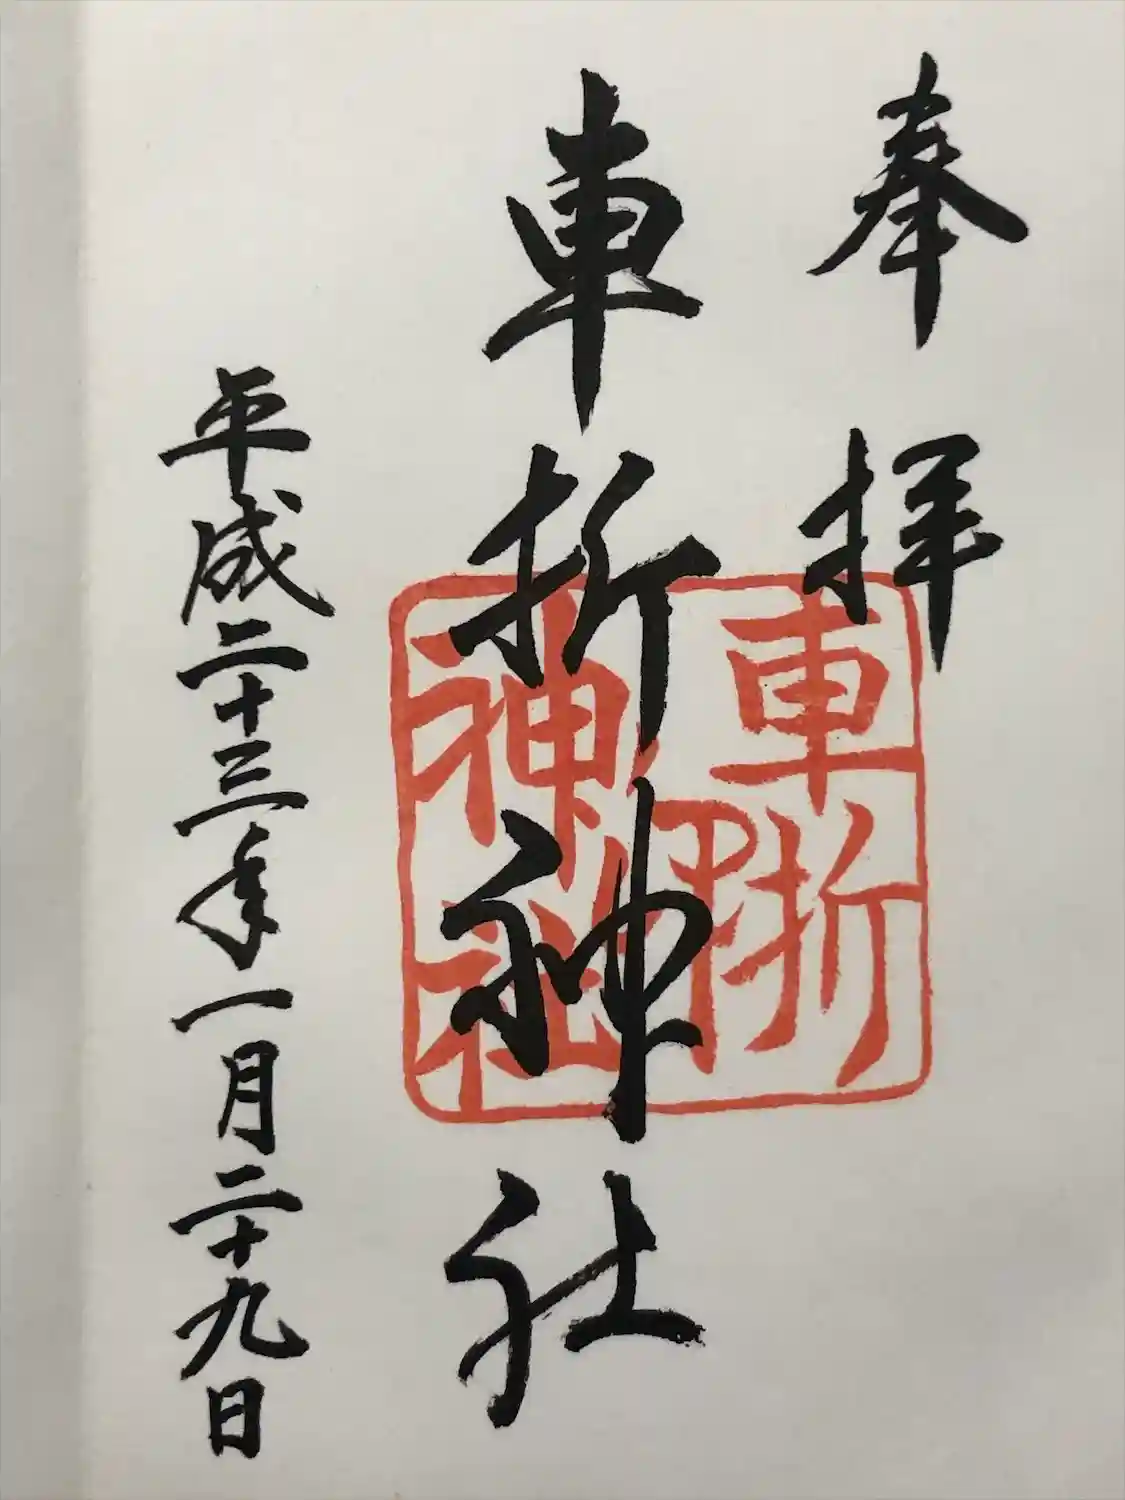 奉拝
車折神社
車折
神社
印
平成二十三年一月二十九日